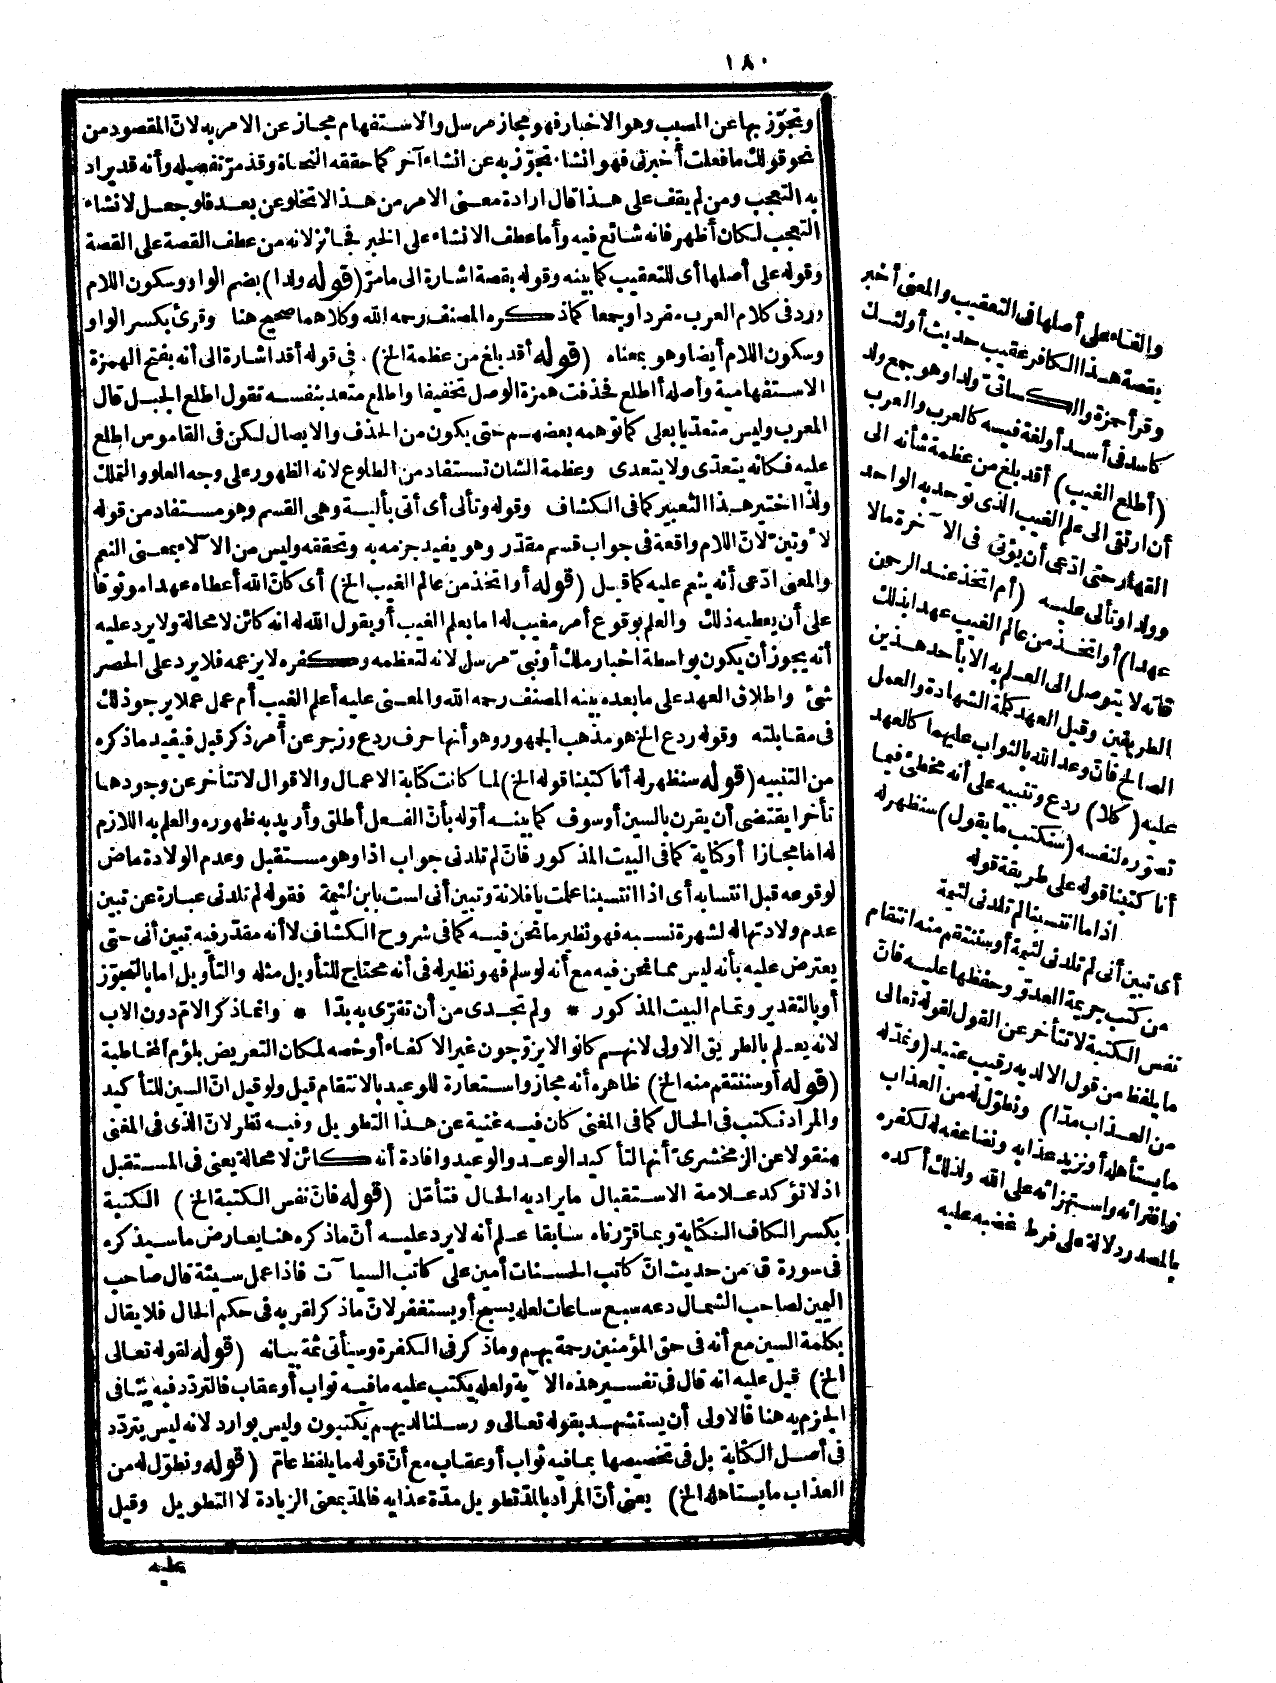 ١٨٠
وتجوّز بها عن المسبب وهو الاخبار فهو مجاز مرسل والاستفهام مجاز عن الامر به لانّ المقصود من
نحو قولك ما فعلت أخبرنى فهو انشاء تجوّز به عن انشاء آخر كما حققه النحاة وقد مرّ تفصيله وأنه قد يراد
به التعجب ومن لم يقف على هذا قال ارادة معنى الامر من هذا لا تخلو عن بعد فلو جعل لانشاء
التعجب لكان أظهر فانه شائع فيه وأما عطف الانشاء على الخبر فجائز لانه من عطف القصة على القصة
وقوله على أصلها أى للتعقيب كما بينه وقوله بقصة اشارة الى ما مرّ (قوله ولدا) بضم الواو وسكون اللام
ورد فى كلام العرب مفردا وجمعا كما ذكره المصنف رحمه الله وكلاهما صحيح هنا وقرئ بكسر الواو
وسكون اللام أيضا وهو بمعناه (قوله أقد بلغ من عظمة الخ) فى قوله أقد اشارة الى أنه بفتح الهمزة
الاستفهامية وأصله أاطلع فحذفت همزة الوصل تخفيفا واطلع متعد بنفسه تقول اطلع الجبل قال
المعرب وليس متعديا بعلى كما توهمه بعضهم حتى يكون من الحذف والايصال لكن فى القاموس اطلع
عليه فكانه يتعدّى ولا يتعدى وعظمة الشان تستفاد من الطلوع لانه الظهور على وجه العلو والتملك
ولذا اختير هذا التعبير كما فى الكشاف وقوله وتألى أى أتى بألية وهى القسم وهو مستفاد من قوله
لأوتينّ لانّ اللام واقعة فى جواب قسم مقدّر وهو يفيد جزمه به وتحققه وليس من الآلاء بمعنى النعم
والمعنى ادّعى أنه ينعم عليه كما قيل (قوله أو اتخذ من عالم الغيب الخ) أى كانّ الله أعطاه عهدا موثوقا
على أن يعطيه ذلك والعلم بوقوع أمر مغيب له اما بعلم الغيب أو بقول الله له انه كائن لا محالة ولا يرد عليه
أنه يجوز أن يكون بواسطة اخبار ملك أو نبىّ مرسل لانه لتعظمه وكفره لا يزعمه فلا يرد على الحصر
شئ واطلاق العهد على ما بعده بينه المصنف رحمه الله والمعنى عليه أعلم الغيب أم عمل عملا يرجو ذلك
فى مقابلته وقوله ردع الخ هو مذهب الجمهور وهو أنها حرف ردع وزجر عن أمر ذكر قبل فيفيد ما ذكره
من التنبيه (قوله سنظهر له أنا كتبنا قوله الخ) لما كانت كتابة الاعمال والاقوال لا تتأخر عن وجودها
تأخرا يقتضى أن يقرن بالسين أو سوف كما بينه أوّله بأنّ الفعل أطلق وأريد به ظهوره والعلم به اللازم
له اما مجازا أو كناية كما فى البيت المذكور فانّ لم تلدنى جواب اذا وهو مستقبل وعدم الولادة ماض
لوقوعه قبل انتسابه أى اذا انتسبنا علمت يا فلانة وتبين أنى لست بابن لئيمة فقوله لم تلدنى عبارة عن تبين
عدم ولادتها له لشهرة نسبه فهو نظير ما نحن فيه كما فى شروح الكشاف لا أنه مقدّر فيه تبين أنى حتى
يعترض عليه بأنه ليس مما نحن فيه مع أنه لو سلم فهو نظير له فى أنه محتاج للتأويل مثله والتأويل اما بالتجوّز
أو بالتقدير وتمام البيت المذكور * ولم تجدى من أن تقرّى به بدّا * وانما ذكر الامّ دون الاب
لانه يعلم بالطريق الاولى لانهم كانوا لا يزوّجون غير الاكفاء أو خصه لمكان التعريض بلؤم المخاطبة
(قوله أو سننتقم منه الخ) ظاهره أنه مجاز واستعارة للوعيد بالانتقام قيل ولو قيل انّ السين للتأكيد
والمراد نكتب فى الحال كما فى المغنى كان فيه غنية عن هذا التطويل وفيه نظر لانّ الذى فى المغنى
منقولا عن الزمخشرىّ أنها لتأكيد الوعد والوعيد وافادة أنه كائن لا محالة يعنى فى المستقبل
اذ لا تؤكد علامة الاستقبال ما يراد به الحال فتأمّل (قوله فانّ نفس الكتبة الخ) الكتبة
بكسر الكاف الكتابة وبما قرّرناه سابقا علم أنه لا يرد عليه أنّ ما ذكره هنا يعارض ما سيذكره
فى سورة ق من حديث انّ كاتب الحسنات أمين على كاتب السيآت فاذا عمل سيئة قال صاحب
اليمين لصاحب الشمال دعه سبع ساعات لعله يسبح أو يستغفر لانّ ما ذكر لقربه فى حكم الحال فلا يقال
بكلمة السين مع أنه فى حق المؤمنين رحمة بهم وما ذكر فى الكفرة وسيأتى ثمة بيانه (قوله لقوله تعالى
الخ) قيل عليه انه قال فى تفسير هذه الآية ولعله يكتب عليه ما فيه ثواب أو عقاب فالتردّد فيه ينافى
الجزم به هنا فالاولى أن يستشهد بقوله تعالى ورسلنا لديهم يكتبون وليس بوارد لانه ليس يتردّد
فى أصل الكتابة بل فى تخصيصها بما فيه ثواب أو عقاب مع أنّ قوله ما يلفظ عامّ (قوله ونطوّل له من
العذاب ما يستاهله الخ) يعنى أنّ المراد بالمدّ تطويل مدّة عذابه فالمدّ بمعنى الزيادة لا التطويل وقيل
عليه
والفاء على أصلها فى التعقيب والمعنى أخبر
بقصة هذا الكافر عقيب حديث أولئك
وقرأ حمزة والكسائىّ ولدا وهو جمع ولد
كاسد فى أسد أو لغة فيه كالعرب والعرب
(أطلع الغيب) أقد بلغ من عظمة شأنه الى
أن ارتقى الى علم الغيب الذى توحد به الواحد
القهار حتى ادّعى أن يؤتى فى الآخرة مالا
وولدا وتألى عليه (أم اتخذ عند الرحمن
عهدا) أو اتخذ من عالم الغيب عهدا بذلك
فانه لا يتوصل الى العلم به الا بأحد هذين
الطريقين وقيل العهد كلمة الشهادة والعمل
الصالح فانّ وعد الله بالثواب عليهما كالعهد
عليه (كلا) ردع وتنبيه على أنه مخطئ فيما
تصوّره لنفسه (سنكتب ما يقول) سنظهر له
أنا كتبنا قوله على طريقة قوله
اذا ما انتسبنا لم تلدنى لئيمة
أى تبين أنى لم تلدنى لئيمة أو سننتقم منه انتقام
من كتب جريمة العدوّ وحفظها عليه فانّ
نفس الكتبة لا تتأخر عن القول لقوله تعالى
ما يلفظ من قول الا لديه رقيب عتيد (ونمدّ له
من العذاب مدّا) ونطوّل له من العذاب
ما يستأهله أو نزيد عذابه ونضاعفه له لكفره
وافترائه واستهزائه على الله ولذلك أكده
بالمصدر دلالة على فرط غضبه عليه